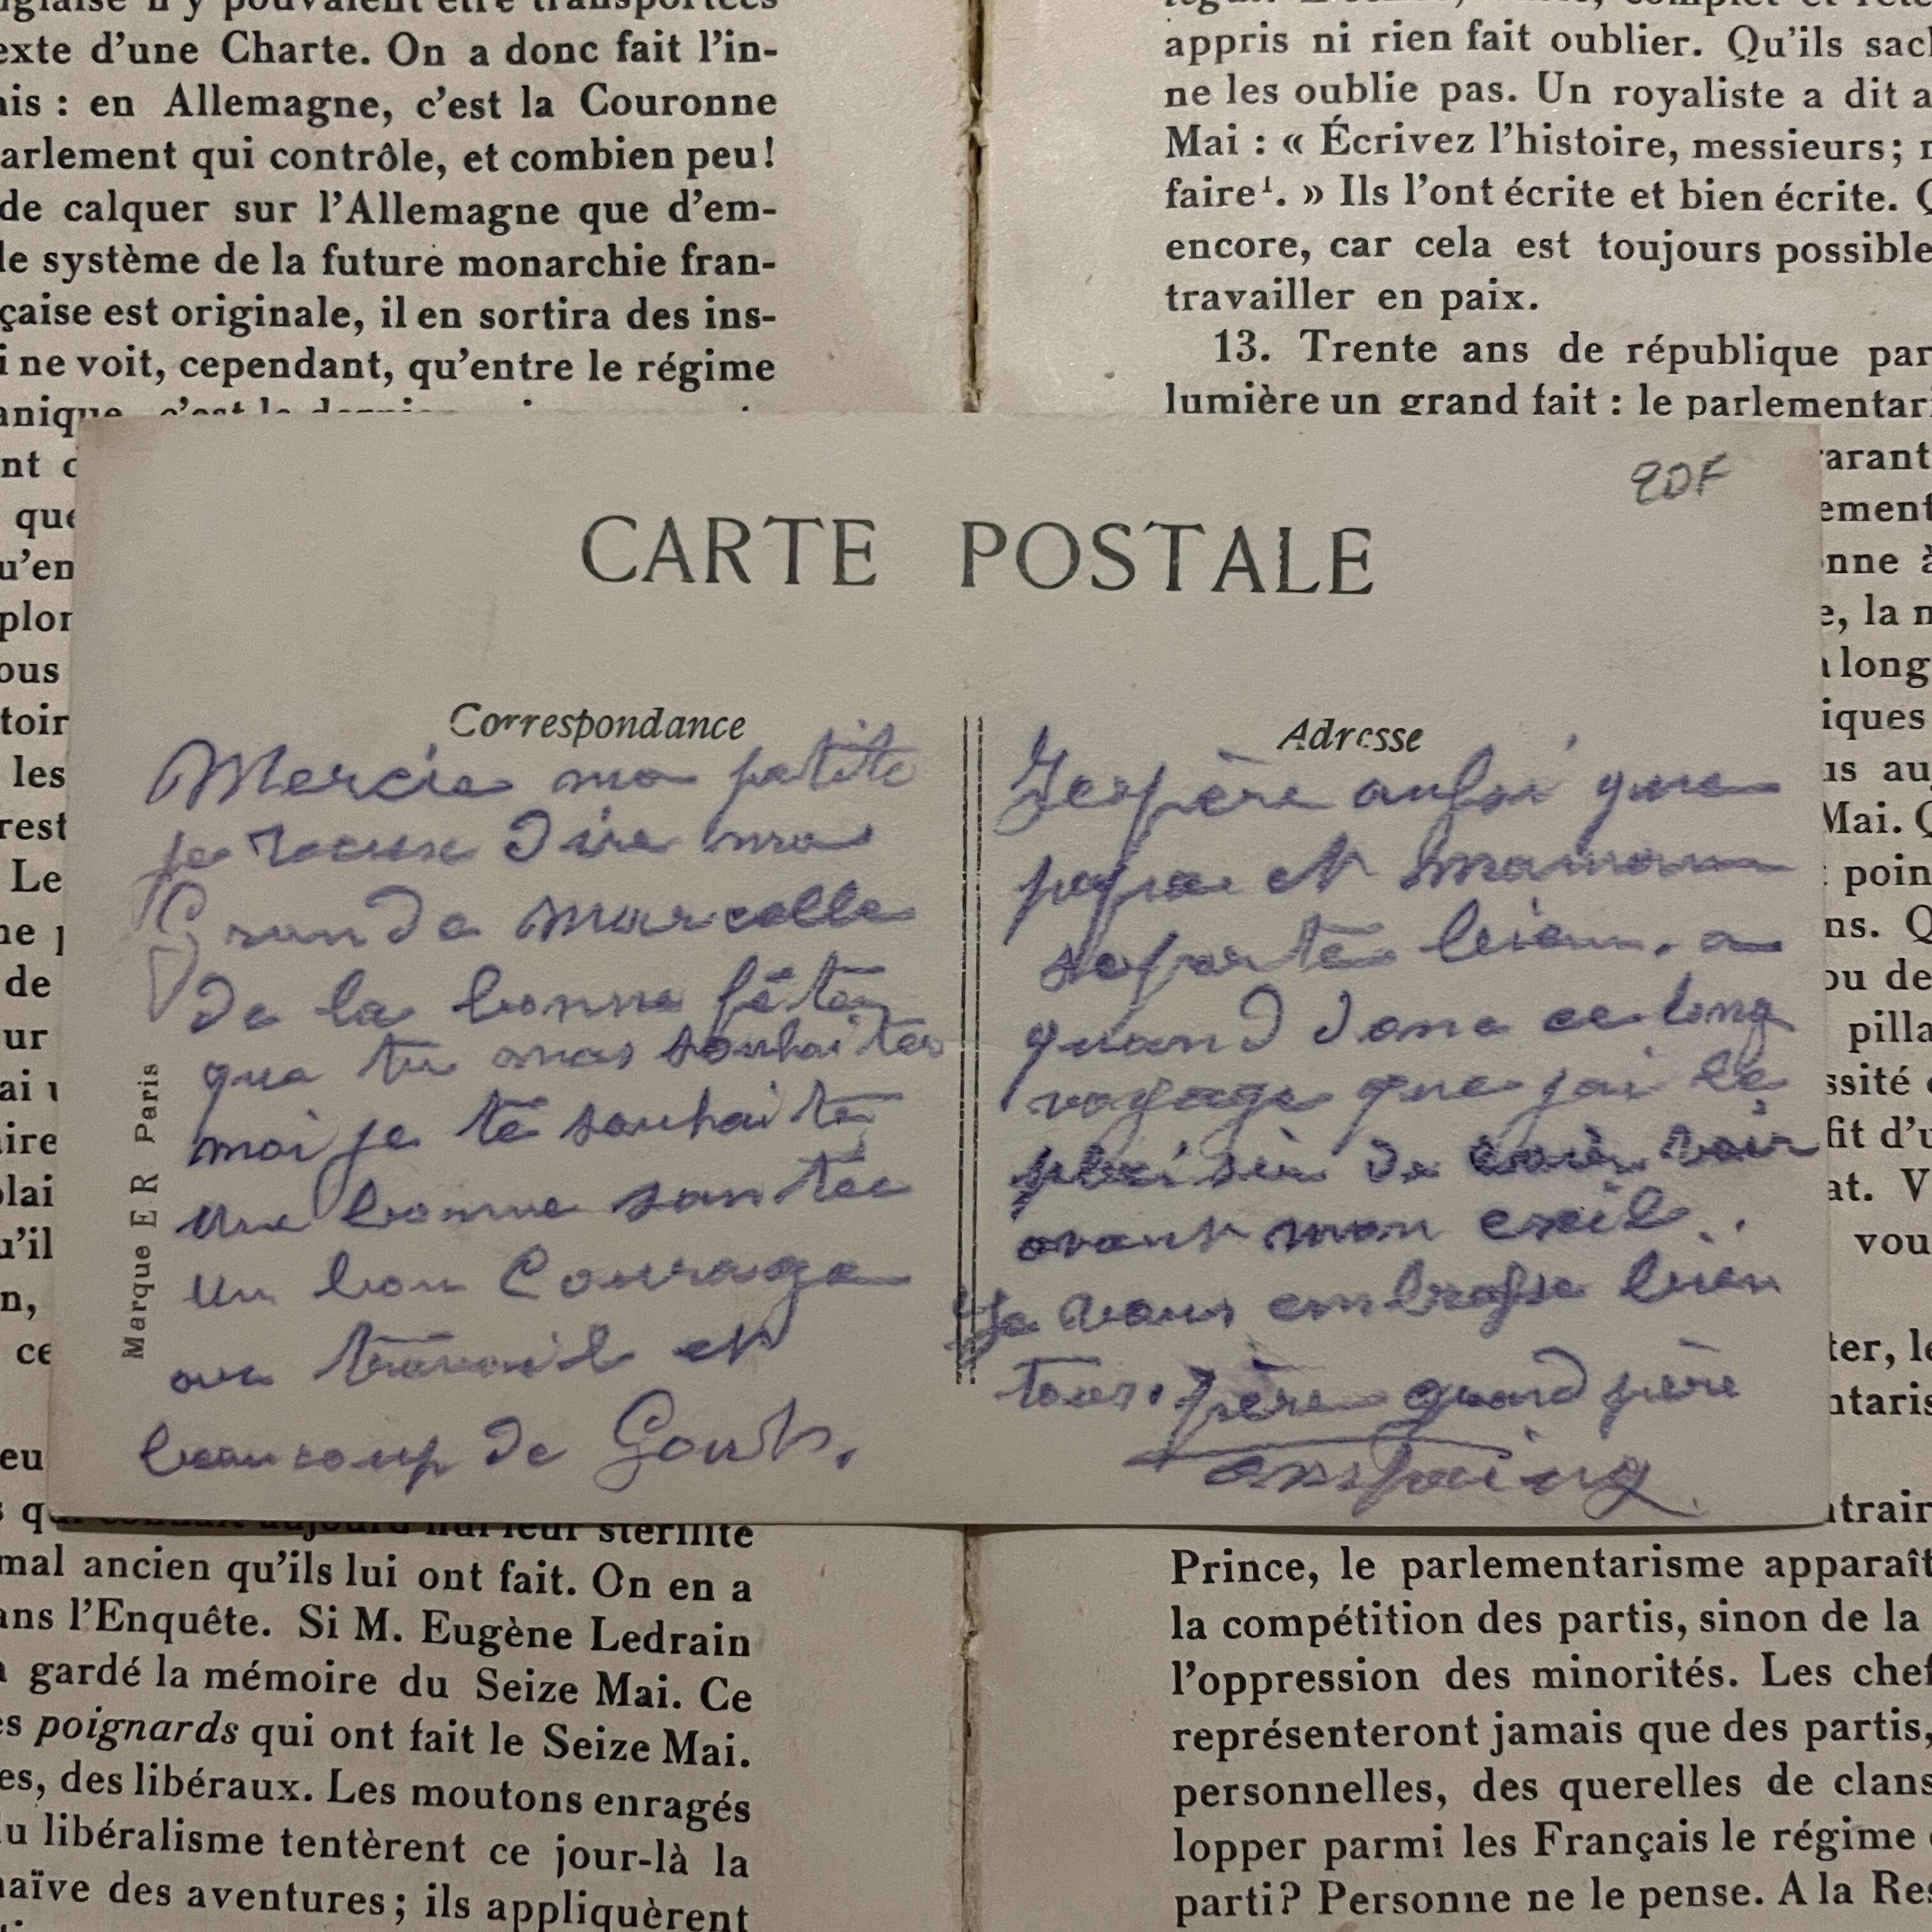 exte d'une Charte. On a donc fait l'in-
: en Allemagne, c'est la Couronne
arlement qui contrôle, et combien peu!
de calquer sur l'Allemagne que d'em-
le système de la future monarchie fran-
çaise est originale, il en sortira des ins-
i ne voit, cependant, qu'entre le régime
appris ni rien fait oublier. Qu'ils
ne les oublie pas. Un royaliste a dit
Mai : « Écrivez l'histoire, messieurs;
faire¹. » Ils l'ont écrite et bien écrite.
encore, car cela est toujours possible
travailler en paix.
13. Trente ans de république par
lumière un grand fait : le parlementar
20F
CARTE POSTALE
Correspondance
Mercie ma petite
je veux dire ma
Grande Marcelle
de la bonne fête
que tu mas souhaites
moi je te souhaite
une bonne santee
un bon Courage
au travail et
beaucoup de Gouts.
Marque E R Paris
Adresse
Jespère aussi que
papa et maman
se porte bien. a
quand donc ce long
voyage que jai le
plaisir de voir
avant mon exil..
Je vous embrasse bien
tous. père grand père
les
rest
Le
de
Mai. Q
poin
pilla
vou
stérilité
mal ancien qu'ils lui ont fait. On en a
ans l'Enquête. Si M. Eugène Ledrain
gardé la mémoire du Seize Mai. Ce
es poignards qui ont fait le Seize Mai.
es, des libéraux. Les moutons enragés
du libéralisme tentèrent ce jour-là la
naïve des aventures; ils appliquèrent
Prince, le parlementarisme apparaît
la compétition des partis, sinon de la
l'oppression des minorités. Les chef
représenteront jamais que des partis,
personnelles, des querelles de clans
lopper parmi les Français le régime
parti? Personne ne le pense. A la Res